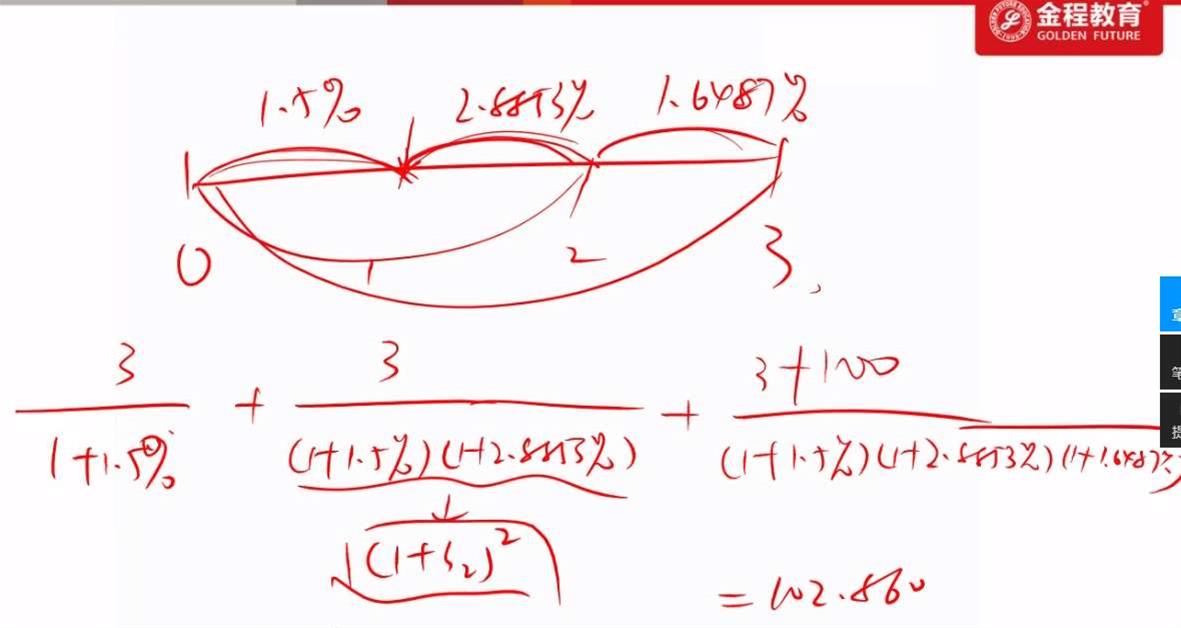 金程教育
GOLDEN FUTURE
1.5% 2.8853% 1.6487%
0 1 2 3
3 + 3 + 3+100
1+1.5% (1+1.5%)(1+2.8853%) (1+1.5%)(1+2.8853%)(1+1.6487%)
(1+S₂)²
=102.860